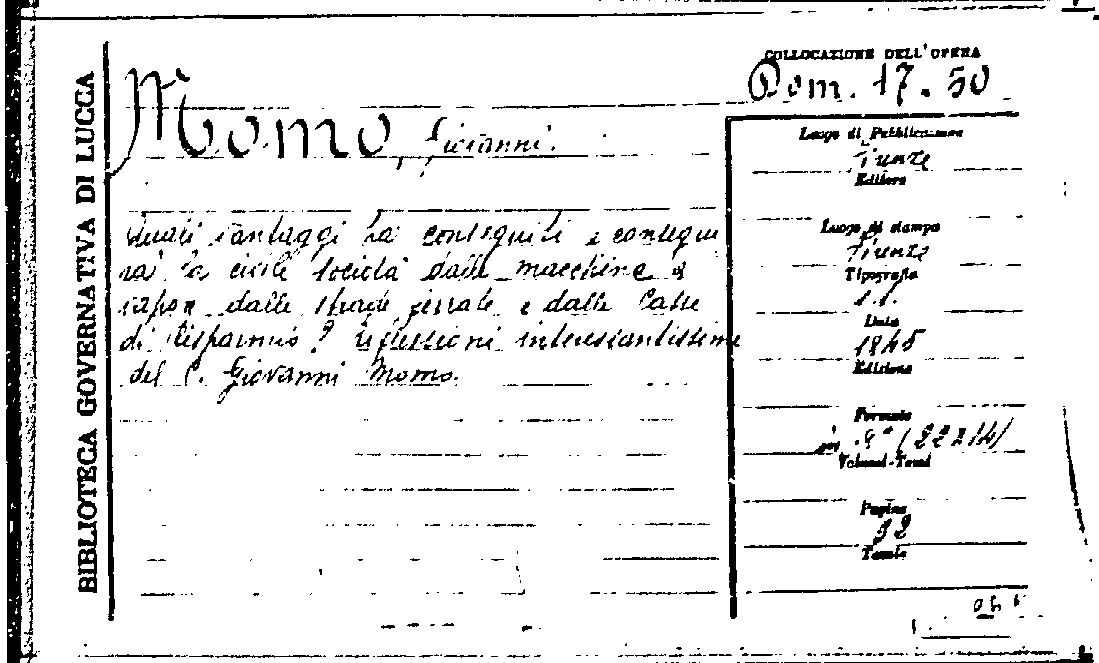 BIBLIOTECA GOVERNATIVA DI LUCCA
COLLOCAZIONE DELL'OPERA
Dom. 17. 50
Momo, Giovanni.
Quali vantaggi ha conseguiti e consegui
rà la civile società dalle macchine a
vapor dalle strade ferrate e dalle Casse
di Risparmio? riflessioni interessantissime
del C. Giovanni Momo.
Luogo di Pubblicazione
Firenze
Editore
Luogo di stampa
Firenze
Tipografia
s.t.
Data
1845
Edizione
Formato
in (22x14)
Volumi-Tomi
Pagine
32
Tavole